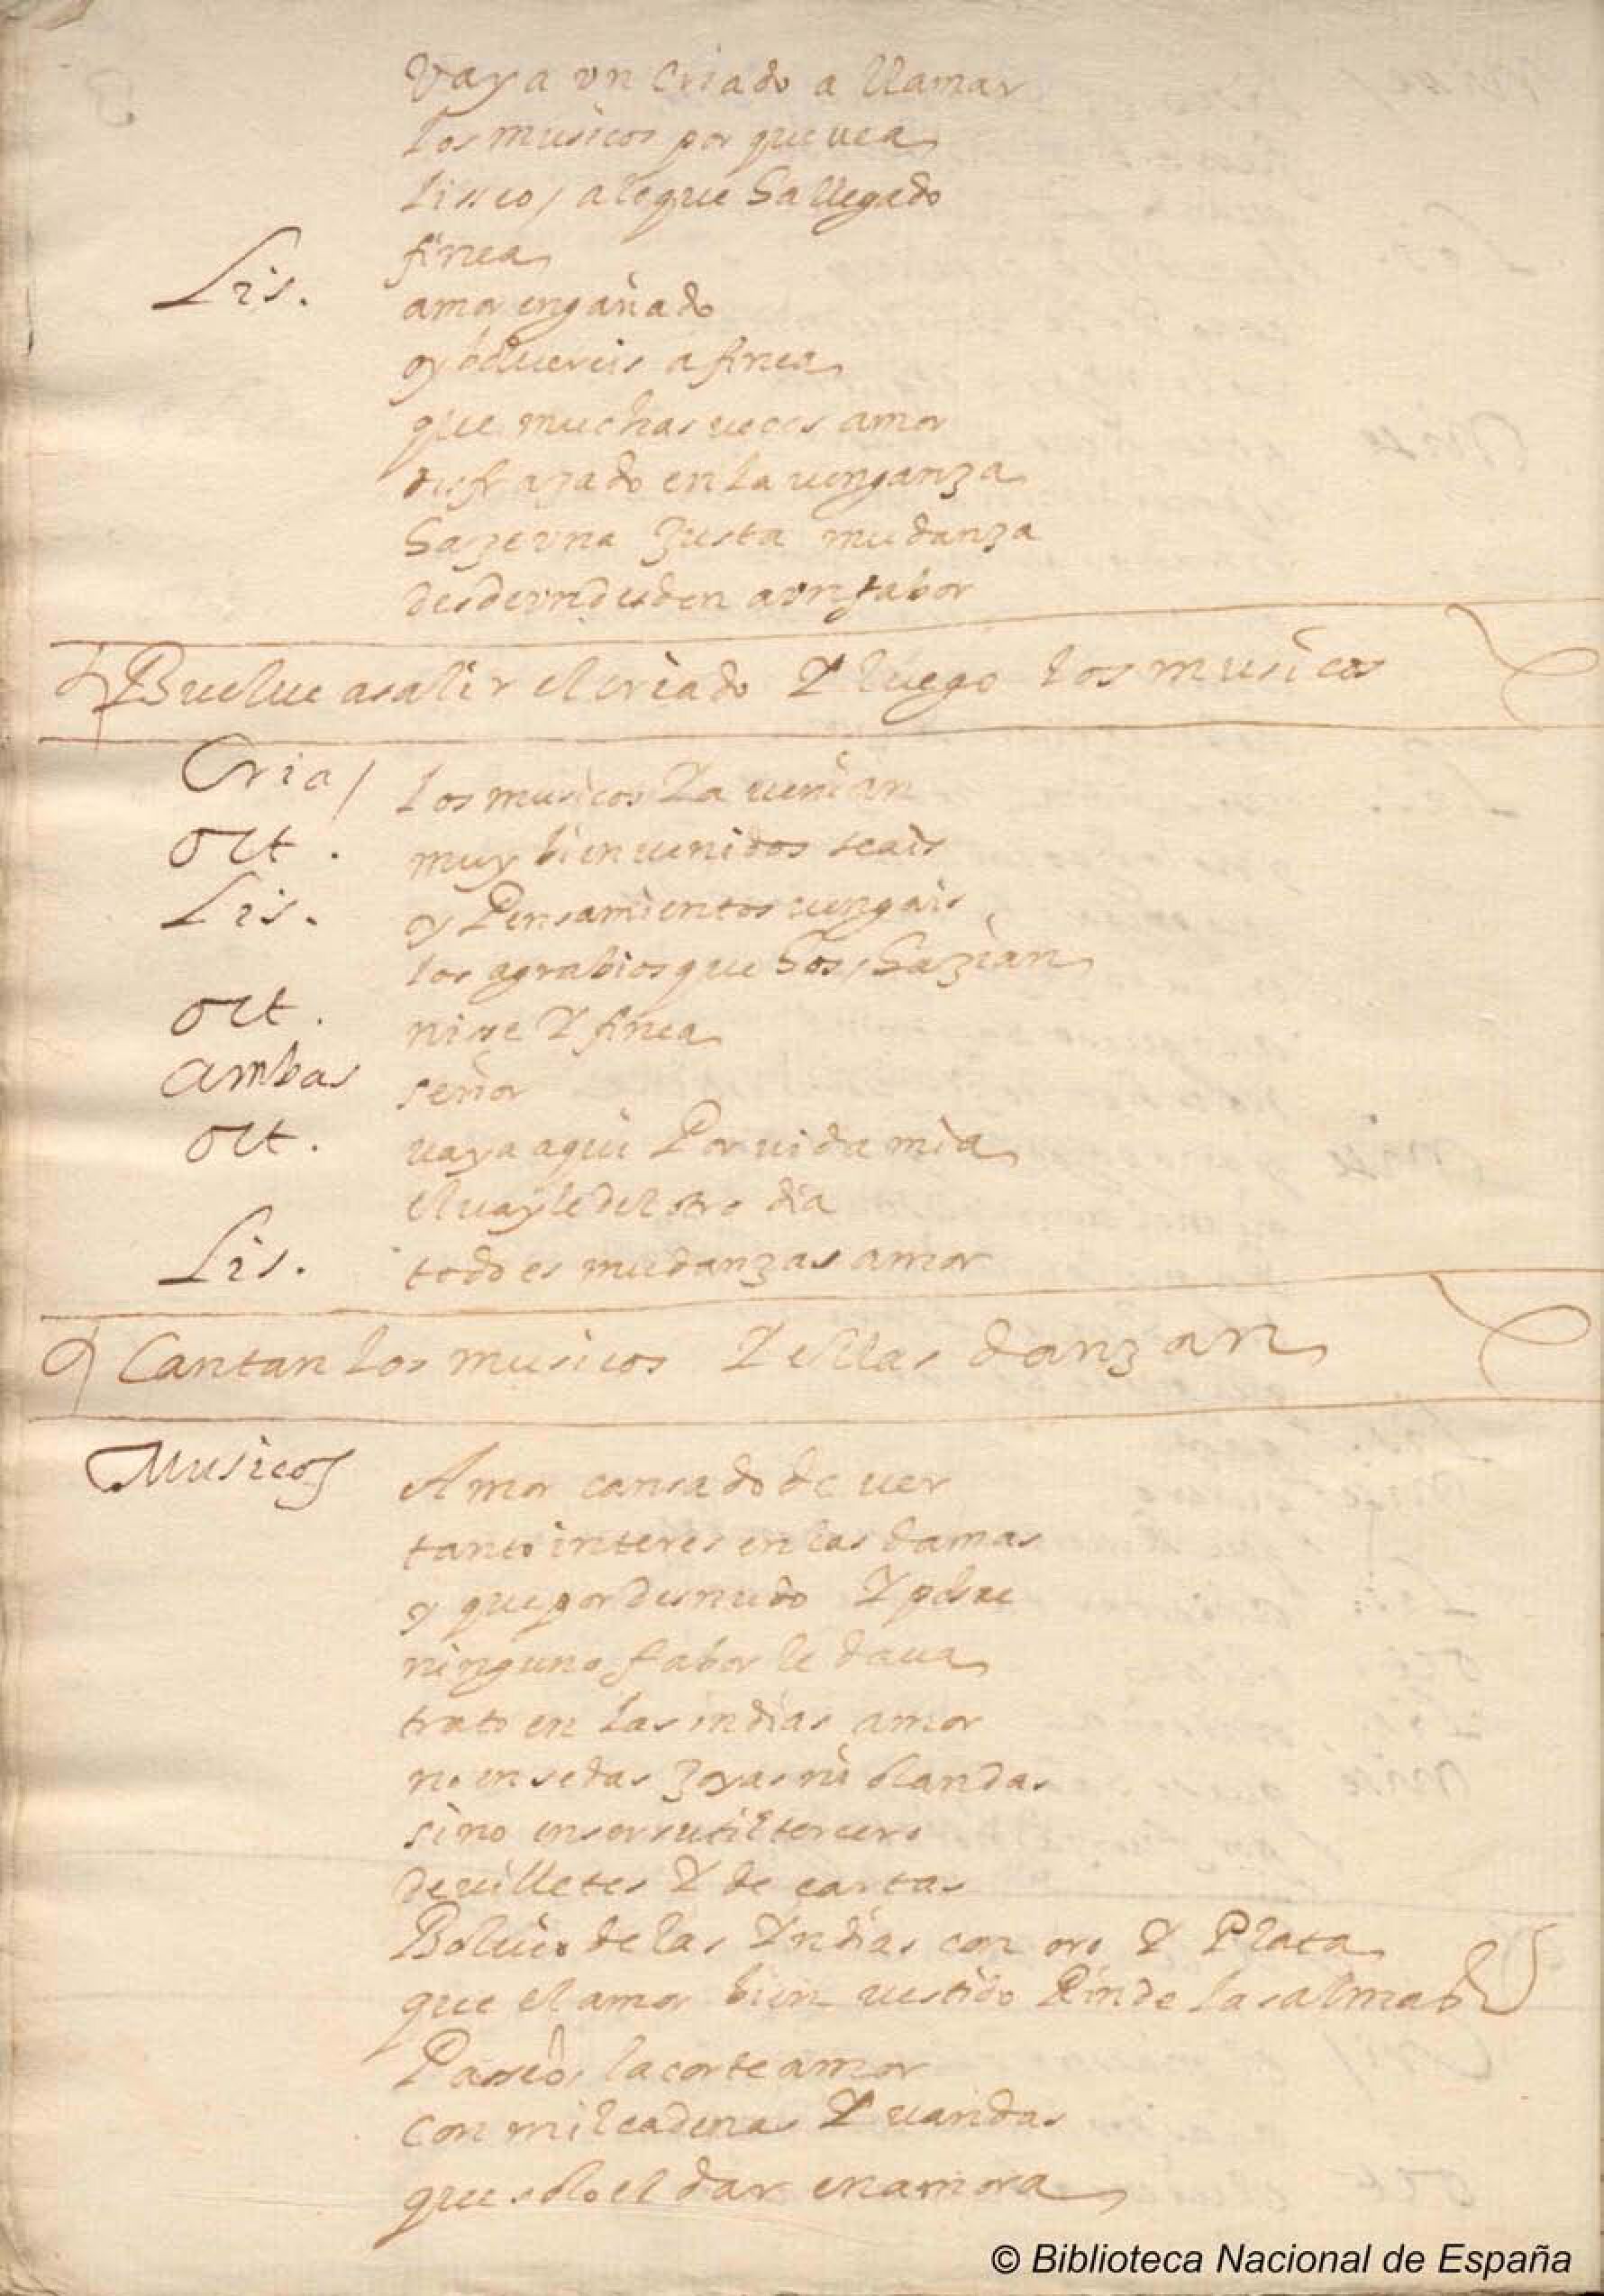 Vaya vn Criado a llamar
los musicos por que uea
Lisseo / a lo que ha llegado
finea
Lis. amor engañado
oy boluereis a finea
que muchas ueces amor
disfraçado en la uenganza
haze vna justa mudanza
desde vn desden a vn fabor
Buelue a salir el criado Y luego los musicos
Cria / Los musicos Ya uenian
Ott. muy bien uenidos seais
Lis. oy Pensamientos uengais
los agrabios que hos / hazian
Ott. nise Y finea
Ambas señor
Ott. uaya aqui Por uida mia
el uayle del otro dia
Lis. todo es mudanzas amor
Cantan los musicos Y ellas danzan
Musicos Amor cansado de uer
tanto interes en las damas
y que por desnudo Y pobre
ninguno fabor le daua
trato en las indias amor
no en sedas joyas ni olandas
sino en ser sutil tercero
de uilletes Y de cartas
Boluio de las Yndias con oro Y Plata
que el amor bien uestido Rinde las almas
Passeo la corte amor
con mil cadenas Y uandas
que solo el dar enamora
© Biblioteca Nacional de España